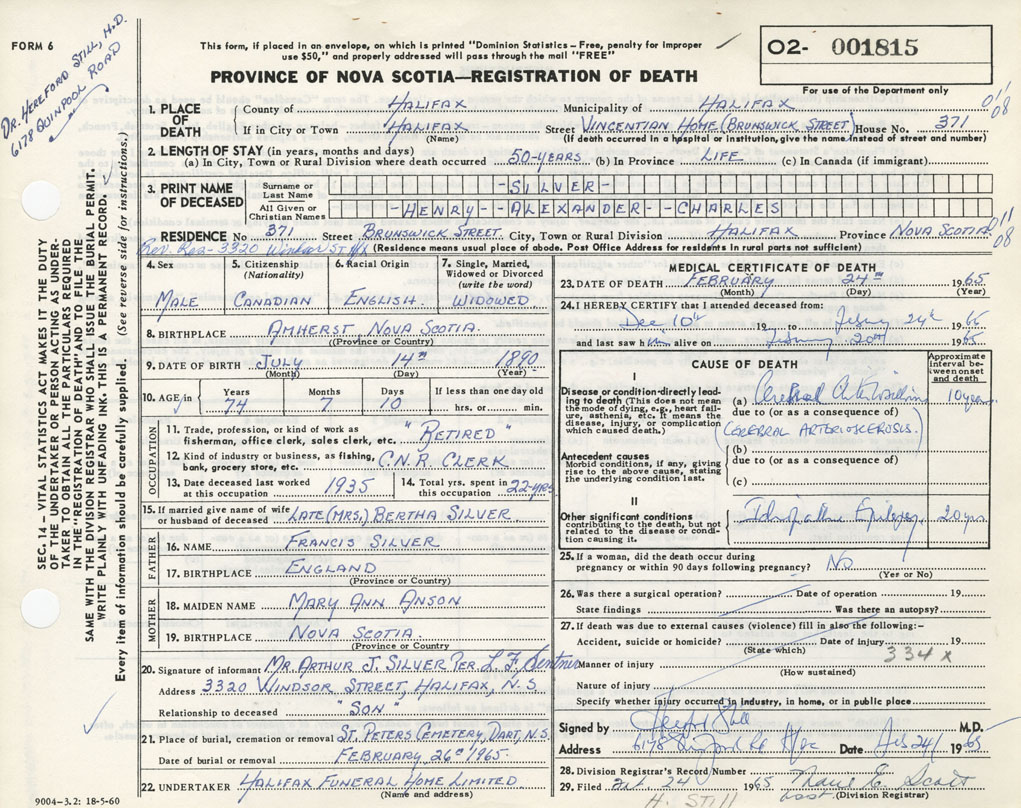 FORM 6
DR. HEREFORD STILL, M.D.
6178 QUINPOOL ROAD
This form, if placed in an envelope, on which is printed "Dominion Statistics – Free, penalty for improper
use $50," and properly addressed will pass through the mail "FREE"
PROVINCE OF NOVA SCOTIA—REGISTRATION OF DEATH
O2- 001815
For use of the Department only
1. PLACE OF DEATH County of HALIFAX Municipality of HALIFAX 01/08
If in City or Town HALIFAX Street VINCENTIAN HOME (BRUNSWICK STREET) House No. 371
(Name) (If death occurred in a hospital or institution, give its name instead of street and number)
2. LENGTH OF STAY (in years, months and days)
(a) In City, Town or Rural Division where death occurred 50-YEARS (b) In Province LIFE (c) In Canada (if immigrant)
3. PRINT NAME OF DECEASED Surname or Last Name -SILVER-
All Given or Christian Names -HENRY--ALEXANDER--CHARLES
RESIDENCE No 371 Street BRUNSWICK STREET City, Town or Rural Division HALIFAX Province NOVA SCOTIA 011/08
Prev. Res- 3320 Windsor St Hfx (Residence means usual place of abode. Post Office Address for residents in rural parts not sufficient)
4. Sex MALE
5. Citizenship (Nationality) CANADIAN
6. Racial Origin ENGLISH
7. Single, Married, Widowed or Divorced (write the word) WIDOWED
8. BIRTHPLACE AMHERST NOVA SCOTIA.
(Province or Country)
9. DATE OF BIRTH JULY 14TH 1890
(Month) (Day) (Year)
10. AGE in Years Months Days If less than one day old
74 7 10 hrs. or min.
OCCUPATION
11. Trade, profession, or kind of work as
fisherman, office clerk, sales clerk, etc. "RETIRED"
12. Kind of industry or business, as fishing,
bank, grocery store, etc. C.N.R. CLERK
13. Date deceased last worked at this occupation 1935
14. Total yrs. spent in this occupation 22-YRS
15. If married give name of wife
or husband of deceased LATE (MRS.) BERTHA SILVER
FATHER
16. NAME FRANCIS SILVER
17. BIRTHPLACE ENGLAND
(Province or Country)
MOTHER
18. MAIDEN NAME MARY ANN ANSON
19. BIRTHPLACE NOVA SCOTIA.
(Province or Country)
20. Signature of informant MR ARTHUR J. SILVER PER L. F.
Address 3320 WINDSOR STREET, HALIFAX, N.S.
Relationship to deceased "SON"
21. Place of burial, cremation or removal ST. PETERS CEMETERY, DART, N.S.
Date of burial or removal FEBRUARY 26TH 1965.
22. UNDERTAKER HALIFAX FUNERAL HOME LIMITED
(Name and address)
MEDICAL CERTIFICATE OF DEATH
23. DATE OF DEATH FEBRUARY 24TH 1965
(Month) (Day) (Year)
24. I HEREBY CERTIFY that I attended deceased from:
Dec 10th 19 to 24th 1965
and last saw him alive on 20th 1965
CAUSE OF DEATH
Approximate interval between onset and death
I
Disease or condition directly leading to death (This does not mean the mode of dying, e.g., heart failure, asthenia, etc. It means the disease, injury, or complication which caused death.)
(a) Cerebral 10 years
due to (or as a consequence of)
(CEREBRAL ARTERIOSCLEROSIS.)
Antecedent causes
Morbid conditions, if any, giving rise to the above cause, stating the underlying condition last.
(b)
due to (or as a consequence of)
(c)
II
Other significant conditions
contributing to the death, but not related to the disease or condition causing it.
Idiopathic Epilepsy 20 yrs
25. If a woman, did the death occur during
pregnancy or within 90 days following pregnancy? NO
(Yes or No)
26. Was there a surgical operation? Date of operation 19
State findings Was there an autopsy?
27. If death was due to external causes (violence) fill in also the following:–
Accident, suicide or homicide? Date of injury 19
(State which) 334 X
Manner of injury
(How sustained)
Nature of injury
Specify whether injury occurred in industry, in home, or in public place
Signed by M.D.
Address 6178 Date Feb 24/ 1965
28. Division Registrar's Record/Number
29. Filed 24 1965 Scott
(Division Registrar)
H. STILL
SEC. 14 – VITAL STATISTICS ACT MAKES IT THE DUTY
OF THE UNDERTAKER OR PERSON ACTING AS UNDER-
TAKER TO OBTAIN ALL THE PARTICULARS REQUIRED
IN THE "REGISTRATION OF DEATH" AND TO FILE THE
SAME WITH THE DIVISION REGISTRAR WHO SHALL ISSUE THE BURIAL PERMIT.
WRITE PLAINLY WITH UNFADING INK. THIS IS A PERMANENT RECORD.
Every item of information should be carefully supplied. (See reverse side for instructions.)
9004-3.2: 18-5-60